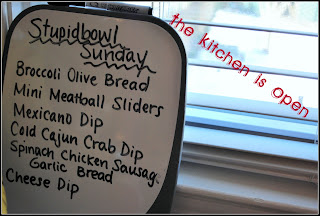 Stupidbowl
Sunday
Broccoli Olive Bread
Mini Meatball Sliders
Mexicano Dip
Cold Cajun Crab Dip
Spinach Chicken Sausag
Garlic Bread
Cheese Dip
the kitchen is Open